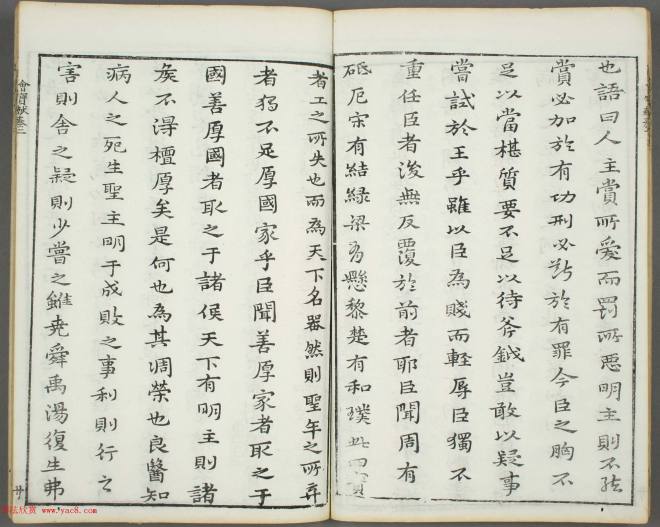 也語曰人主賞所愛而罰所惡明主則不然
賞必加於有功刑必斷於有罪今臣之胸不
足以當椹質要不足以待斧鉞豈敢以疑事
嘗試於王乎雖以臣為賤而輕辱臣獨不
重任臣者後無反覆於前者耶臣聞周有
砥厄宋有結綠梁有懸黎楚有和璞此四寶
者工之所失也而為天下名器然則聖王之所弃
者獨不足厚國家乎臣聞善厚家者取之于
國善厚國者取之于諸侯天下有明主則諸
矦不得擅厚矣是何也為其凋榮也良醫知
病人之死生聖主明于成敗之事利則行之
害則舍之疑則少嘗之雖堯舜禹湯復生弗
卷二
廿
www.yac8.com